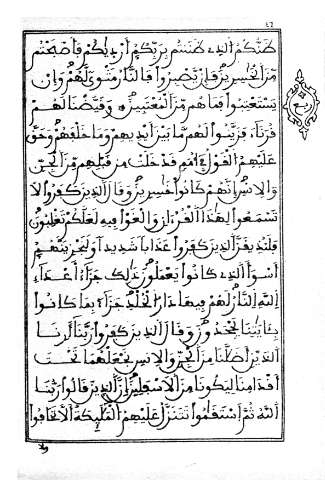 ٤٦
ظنكم الذي ظننتم بربكم أرديكم فأصبحتم
من الخسرين فإن يصبروا فالنار مثوى لهم وإن
يستعتبوا فما هم من المعتبين وقيضنا لهم
ربع
قرناء فزينوا لهم ما بين أيديهم وما خلفهم وحق
عليهم القول في أمم قد خلت من قبلهم من الجن
والإنس إنهم كانوا خسرين وقال الذين كفروا لا
تسمعوا لهذا القرءان والغوا فيه لعلكم تغلبون
فلنذيقن الذين كفروا عذابا شديدا ولنجزينهم
أسوأ الذي كانوا يعملون ذلك جزاء أعداء
الله النار لهم فيها دار الخلد جزاء بما كانوا
بـٔايتنا يجحدون وقال الذين كفروا ربنا أرنا
الذين أضلنا من الجن والإنس نجعلهما تحت
أقدامنا ليكونا من الأسفلين إن الذين قالوا ربنا
الله ثم استقموا تتنزل عليهم الملئكة ألا تخافوا
ولا